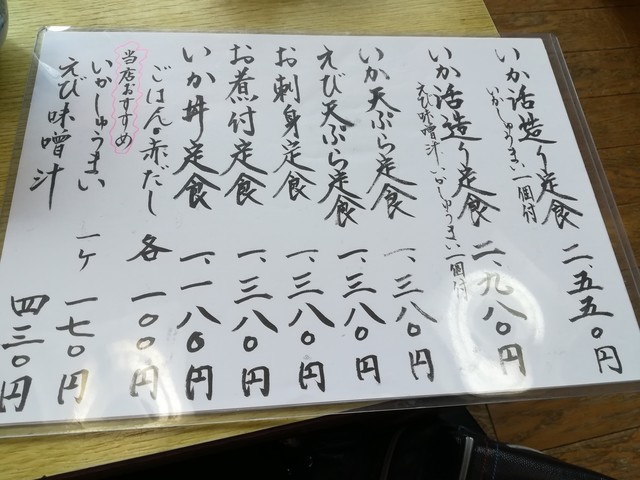 いか活造り定食 二、五五〇円
いかしゅうまい一個付
いか活造り定食 二、九八〇円
えび味噌汁、いかしゅうまい一個付
いか天ぷら定食 一、三八〇円
えび天ぷら定食 一、三八〇円
お刺身定食 一、三八〇円
お煮付定食 一、三八〇円
いか丼定食 一、一八〇円
ごはん・赤だし 各 一〇〇円
当店おすすめ
いかしゅうまい 一ケ 一七〇円
えび味噌汁 四三〇円